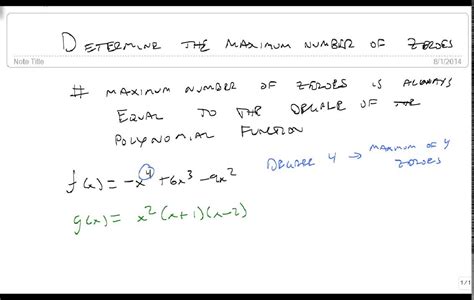 DETERMINE THE MAXIMUM NUMBER OF ZEROES
Note Title
8/1/2014
# MAXIMUM NUMBER OF ZEROES IS ALWAYS
EQUAL TO THE DEGREE OF THE
POLYNOMIAL FUNCTION
DEGREE 4 → MAXIMUM OF 4
ZEROES
f(x) = -x⁴ + 6x³ - 9x²
g(x) = x²(x+1)(x-2)
1/1